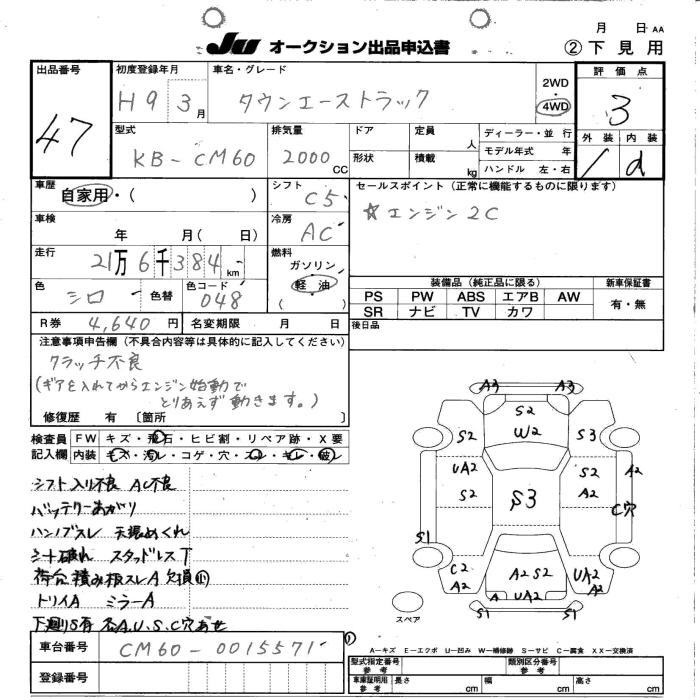 月 日 AA
JU オークション出品申込書 ② 下見用
出品番号 47
初度登録年月 H9 3月
車名・グレード タウンエーストラック
2WD・4WD
評価点 3
外装 内装 d
型式 KB-CM60
排気量 2000CC
ドア 定員 人
形状 積載 kg
ディーラー・並行
モデル年式 年
ハンドル 左・右
車歴 自家用・( )
シフト C5
車検 年 月( 日)
冷房 AC
走行 21万6千384km
燃料 ガソリン 軽油 ( )
色 シロ 色替 色コード 048
R券 4,640円 名変期限 月 日
セールスポイント(正常に機能するものに限ります)
☆エンジン2C
装備品(純正品に限る) 新車保証書
PS PW ABS エアB AW 有・無
SR ナビ TV カワ
後日品
注意事項申告欄(不具合内容等は具体的に記入してください)
クラッチ不良
(ギアを入れてからエンジン始動で
とりあえず動きます。)
修復歴 有 〔箇所 〕
検査員記入欄
FW キズ・飛石・ヒビ割・リペア跡・X要
内装 キズ・汚レ・コゲ・穴・スレ・キレ・破レ
シフト入り不良 AC不良
バッテリーあがり
ハンドルスレ 天張めくれ
シート破れ スタッドレスT
荷台積み板スレA 欠損
トリイA ミラーA
下廻りS有 A.U.S.C穴あせ
車台番号 CM60-0015571
登録番号
A3 A3
S2
S2 W2 S3
UA2 S2 A2
S2 S3 A2 C穴
S1 S1
C2 A2 S2 UA2
A2 A UA2 A2
S1 S1
スペア
A-キズ E-エクボ U-凹み W-補修跡 S-サビ C-腐食 XX-交換済
型式指定番号 参考 類別区分番号 参考
車庫証明用 参考 長さ cm 幅 cm 高さ cm